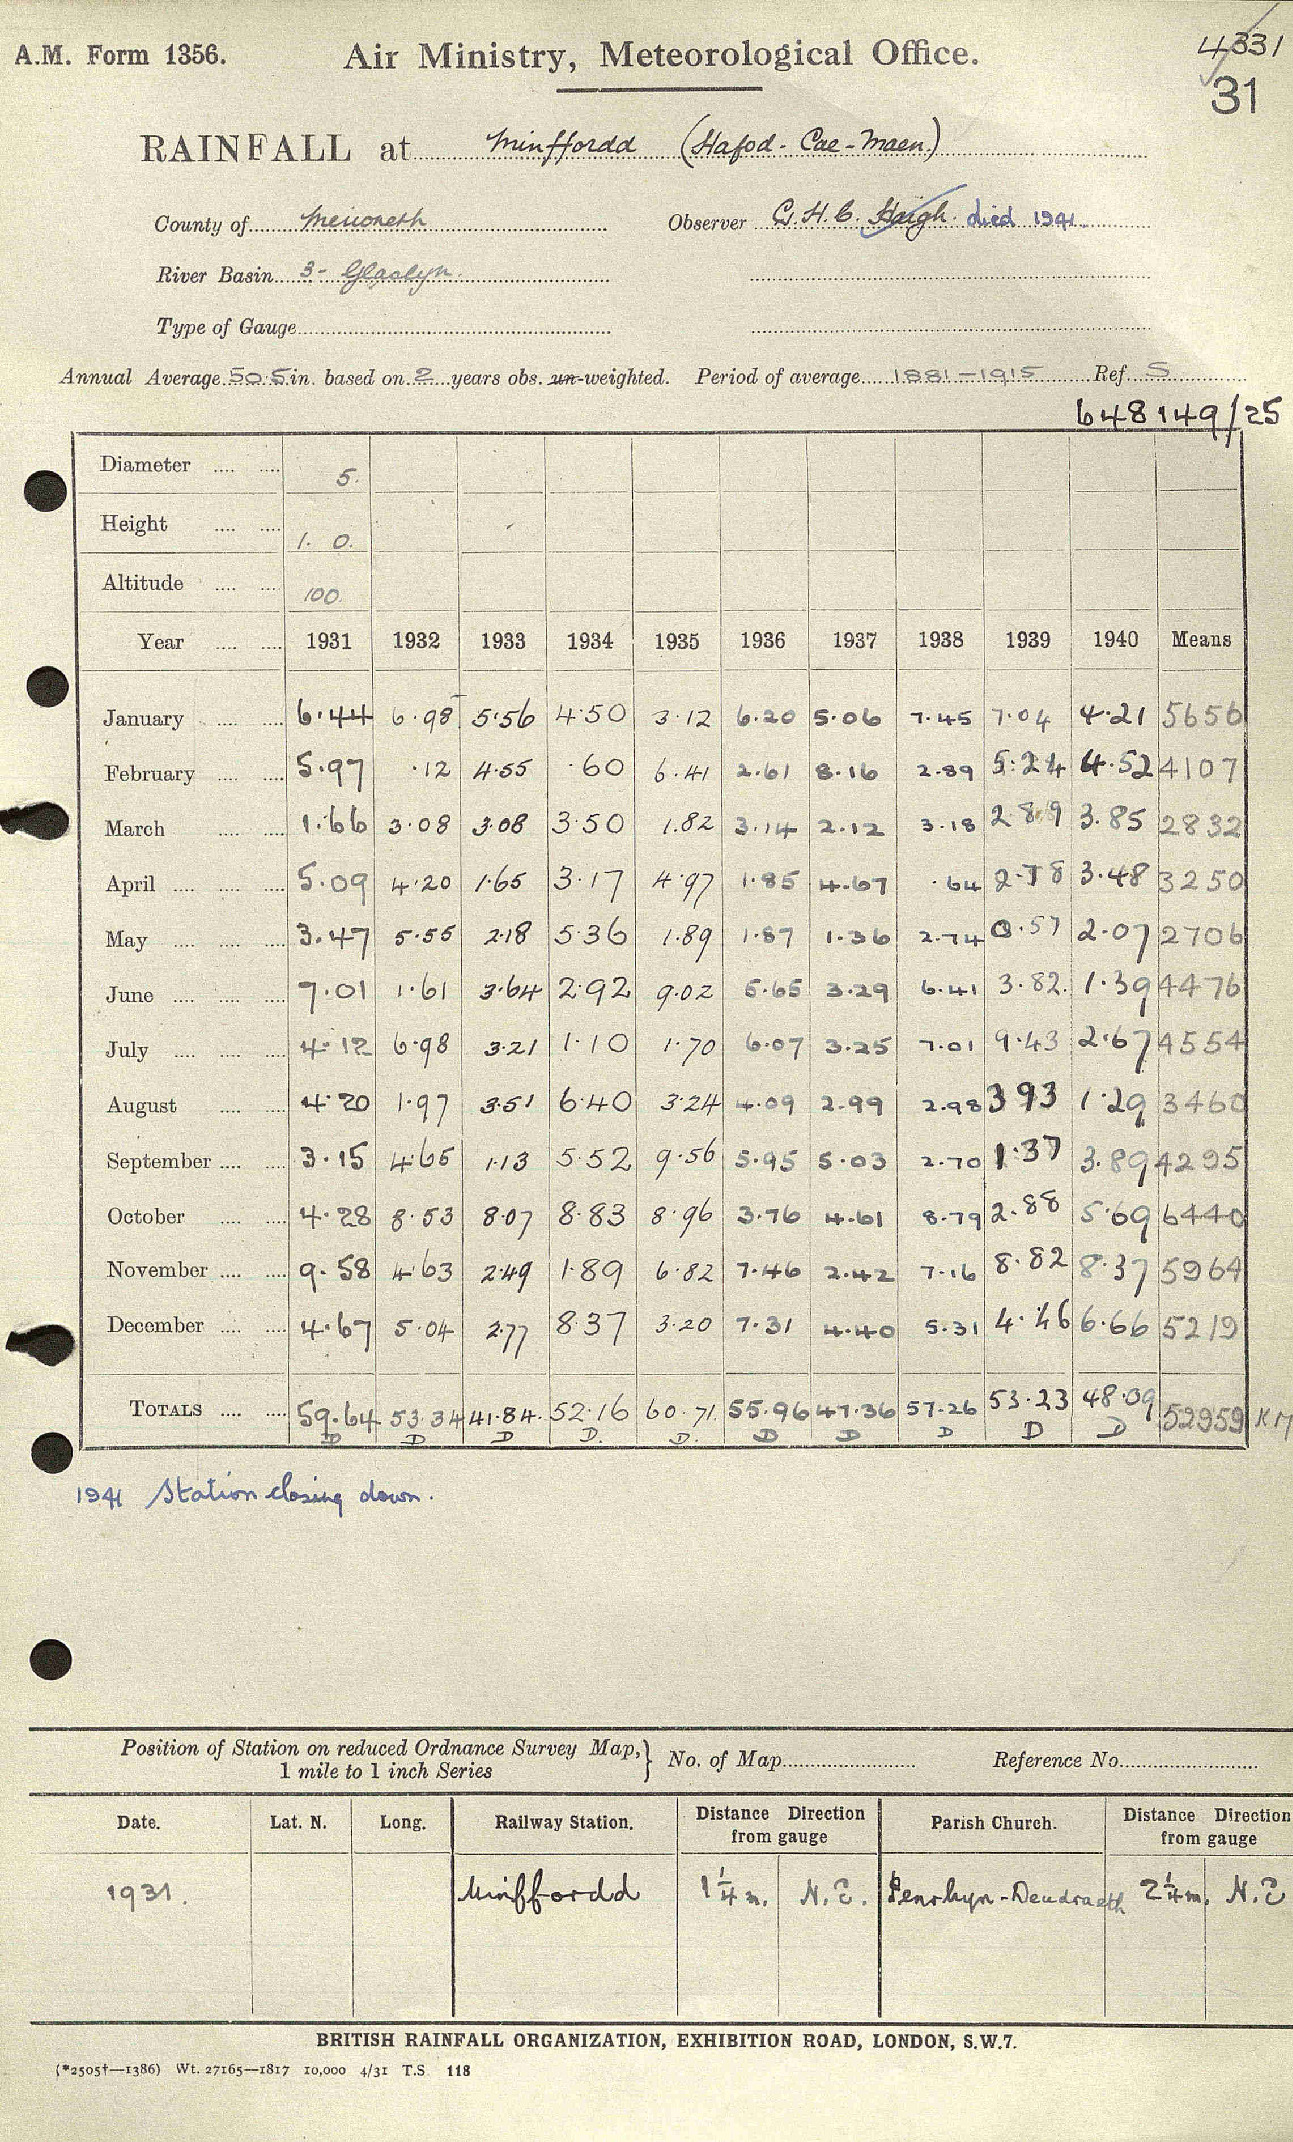 A.M. Form 1356. Air Ministry, Meteorological Office. 4331
31
RAINFALL at Minffordd (Hafod-Cae-Maen)
County of Merioneth Observer G.H.C. Haigh. died 1941.
River Basin 3- Glaslyn.
Type of Gauge
Annual Average 50.5 in. based on 2 years obs. un-weighted. Period of average 1881-1915 Ref. S
648149/25
Diameter 5.
Height 1. 0.
Altitude 100.
Year 1931 1932 1933 1934 1935 1936 1937 1938 1939 1940 Means
January 6.44 6.98 5.56 4.50 3.12 6.20 5.06 7.45 7.04 4.21 5656
February 5.97 .12 4.55 .60 6.41 2.61 8.16 2.89 5.24 4.52 4107
March 1.66 3.08 3.08 3.50 1.82 3.14 2.12 3.18 2.89 3.85 2832
April 5.09 4.20 1.65 3.17 4.97 1.85 4.67 .64 2.78 3.48 3250
May 3.47 5.55 2.18 5.36 1.89 1.87 1.36 2.74 0.57 2.07 2706
June 7.01 1.61 3.64 2.92 9.02 5.65 3.29 6.41 3.82. 1.39 4476
July 4.12 6.98 3.21 1.10 1.70 6.07 3.25 7.01 9.43 2.67 4554
August 4.20 1.97 3.51 6.40 3.24 4.09 2.99 2.98 3 93 1.29 3460
September 3.15 4.65 1.13 5.52 9.56 5.95 5.03 2.70 1.37 3.89 4295
October 4.28 8.53 8.07 8.83 8.96 3.76 4.61 8.79 2.88 5.69 6440
November 9.58 4.63 2.49 1.89 6.82 7.46 2.42 7.16 8.82 8.37 5964
December 4.67 5.04 2.77 8.37 3.20 7.31 4.40 5.31 4.46 6.66 5219
TOTALS 59.64 53.34 41.84. 52.16 60.71. 55.96 47.36 57.26 53.23 48.09 52959 KM
D D D D. D. D D D D D
1941 Station closing down.
Position of Station on reduced Ordnance Survey Map,} No. of Map Reference No.
1 mile to 1 inch Series
Date. Lat. N. Long. Railway Station. Distance Direction Parish Church. Distance Direction
from gauge from gauge
1931. Minffordd 1¼ m. N.E. Penrhyn-Deudraeth 2¼ m. N.E
BRITISH RAINFALL ORGANIZATION, EXHIBITION ROAD, LONDON, S.W.7.
(*2505†—1386) Wt. 27165—1817 10,000 4/31 T.S. 118